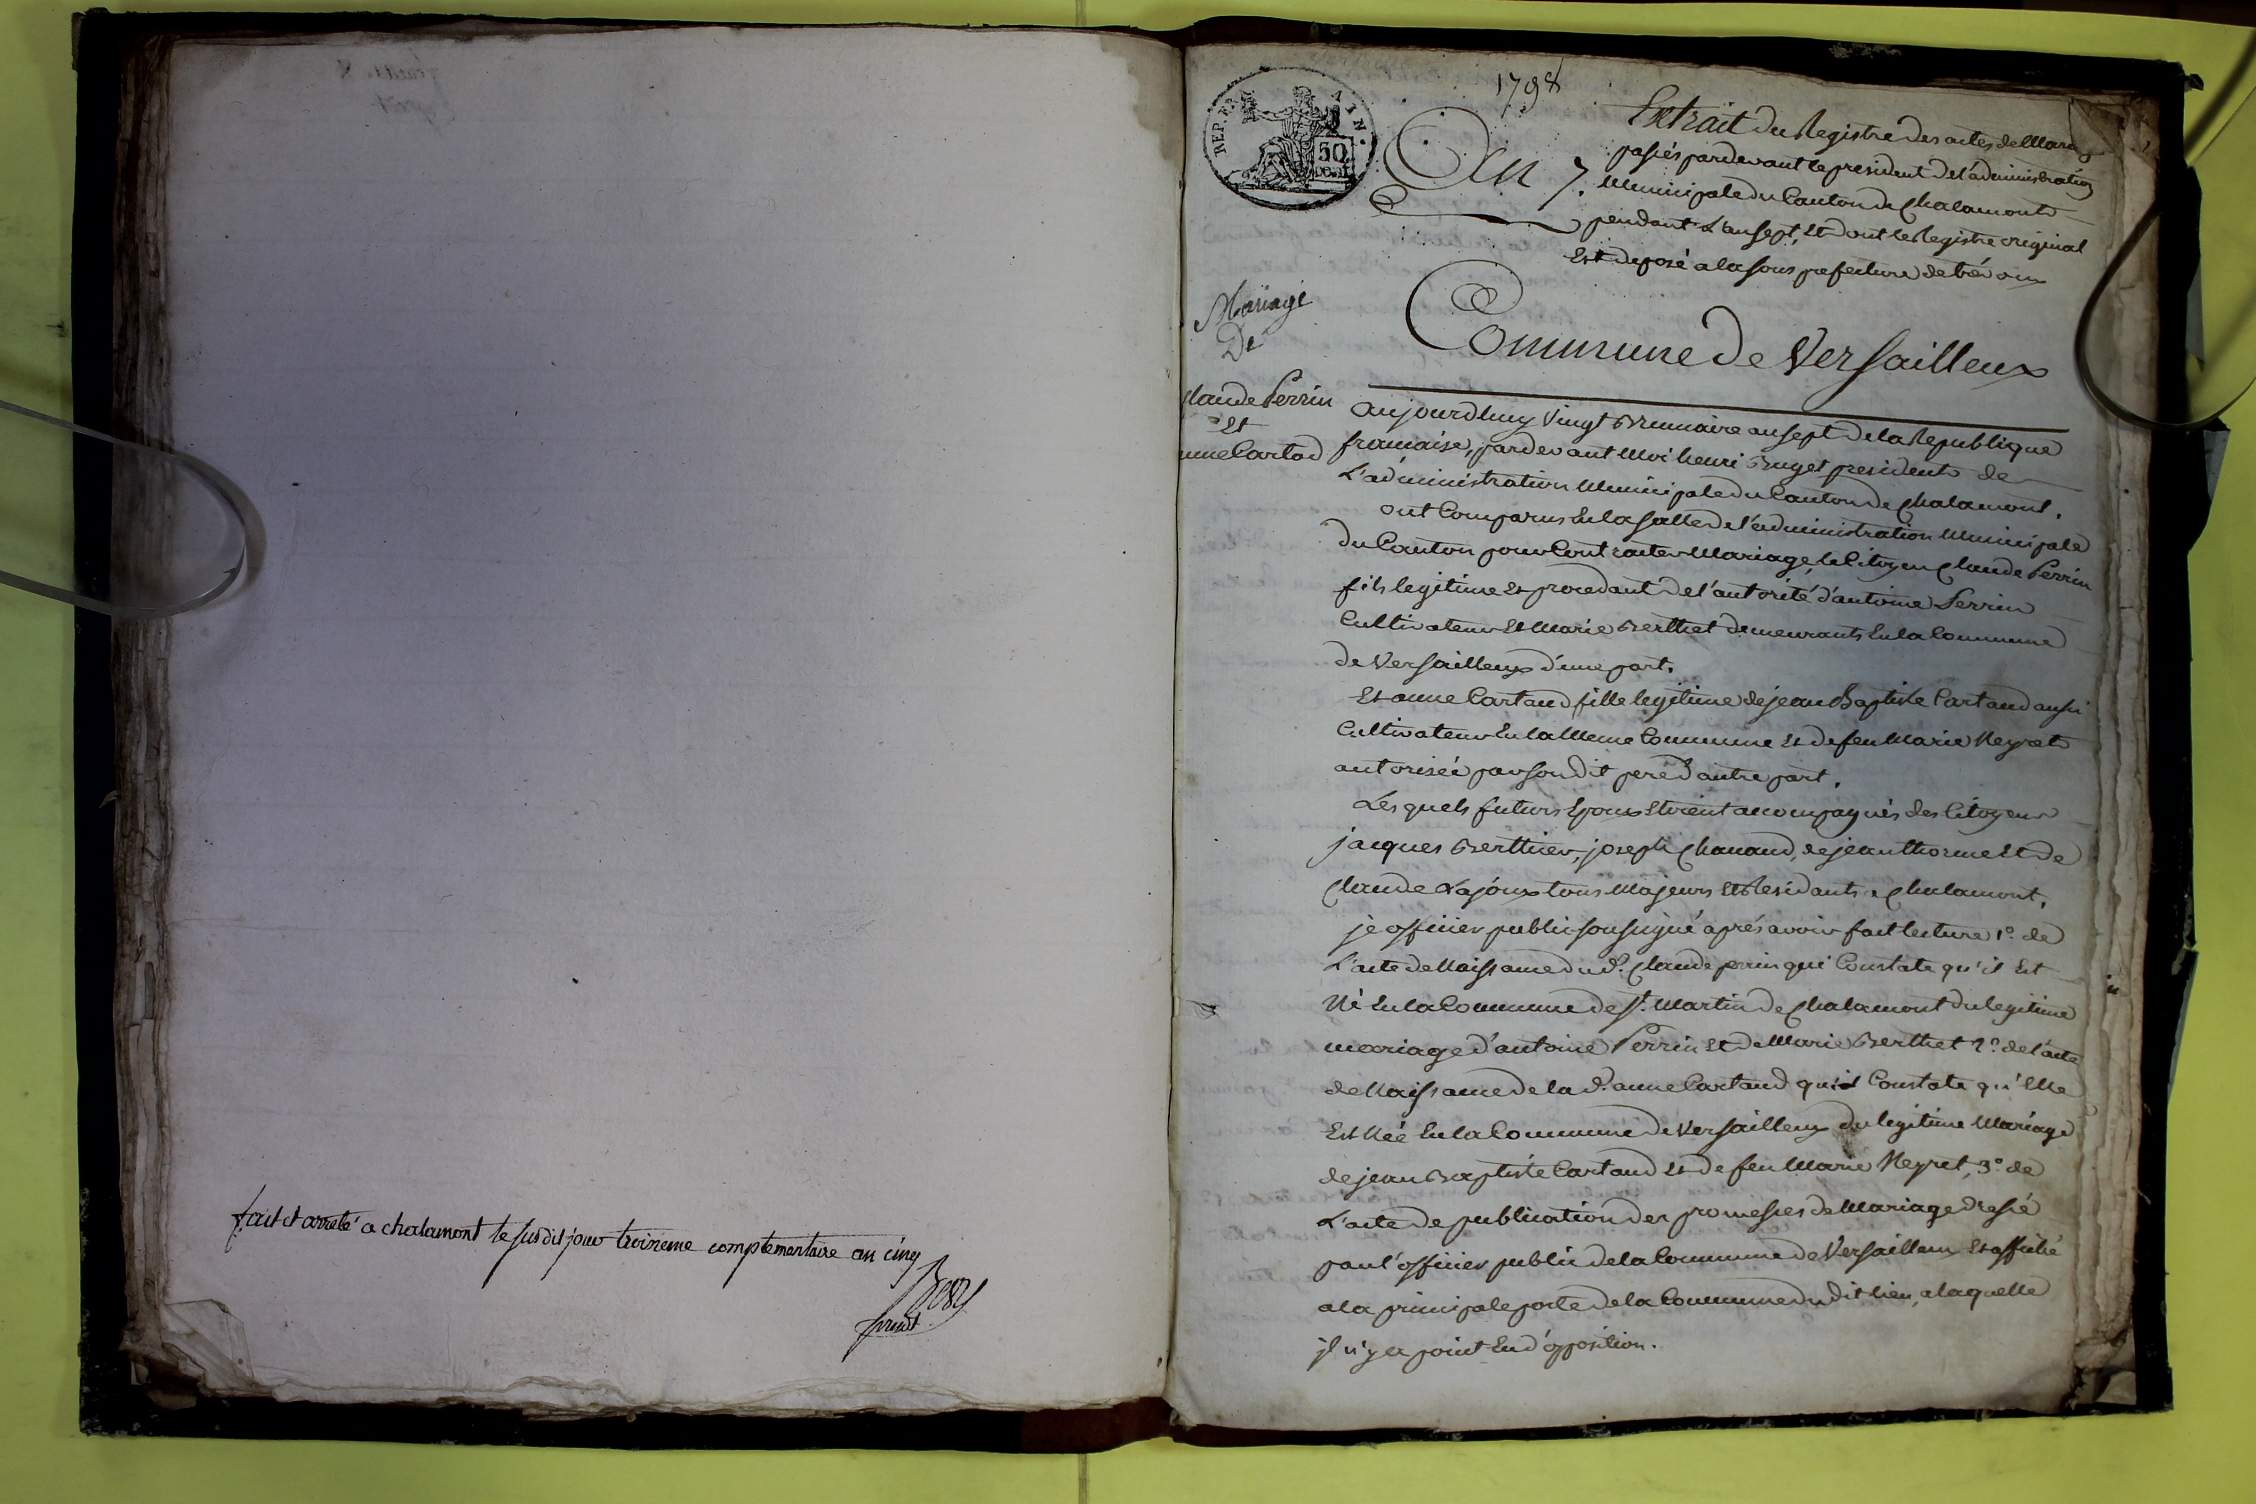 fait et arreté a chalamont le susdit jour troisieme complementaire an cinq
1798
REP. FRA. AIN.
50 cent
An 7.
Extrait du Registre des actes de Mariag
passés pardevant le president de l'administration
Municipale du Canton de Chalamont
pendant L'an sept, Et dont le Registre original
Est deposé a la sous prefecture de trévoux
Commune de Versailleux
Mariage
De
Claude Perrin
Et
anne Cartad
Aujourdhuy vingt Brumaire an sept de la Republique
francaise, pardevant Moi henri Buget president de
L'administration Municipale du Canton de Chalamont.
ont Comparus En la salle de l'administration Municipale
du Canton pour Contracter Mariage, le Citoyen Claude Perrin
fils legitime Et procedant de l'autorité d'antoine Perrin
Cultivateur Et Marie Berthet demeurants En la Commune
de Versailleux d'une part.
Et anne Cartaud fille legitime de jean Baptiste Cartaud aussi
Cultivateur En la Meme Commune Et de feu Marie Neyret
autorisée par son dit pere d'autre part.
Les quels futurs Epoux Etoient accompagnés des Citoyens
jacques Berthier, joseph Chanaud, de jean thorme Et de
Claude Lajoux tous Majeurs Et Residants a Chalamont.
je officier public soussigné aprés avoir fait lecture 1º. de
L'acte de Naissance du d. Claude perrin qui Constate qu'il Est
Né En la Commune de St. Martin de Chalamont du legitime
mariage d'antoine Perrin Et de Marie Berthet 2º. de l'acte
de Naissance de la d. anne Cartaud qui Constate qu'Elle
Est Née En la Commune de Versailleux du legitime Mariage
de jean Baptiste Cartaud Et de feu Marie Neyret, 3º. de
L'acte de publication des promesses de Mariage dressé
par l'officier public de la Commune de Versailleux Et affiché
a la principale porte de la Commune du dit lieu, a laquelle
il n'y a point Eu d'opposition.